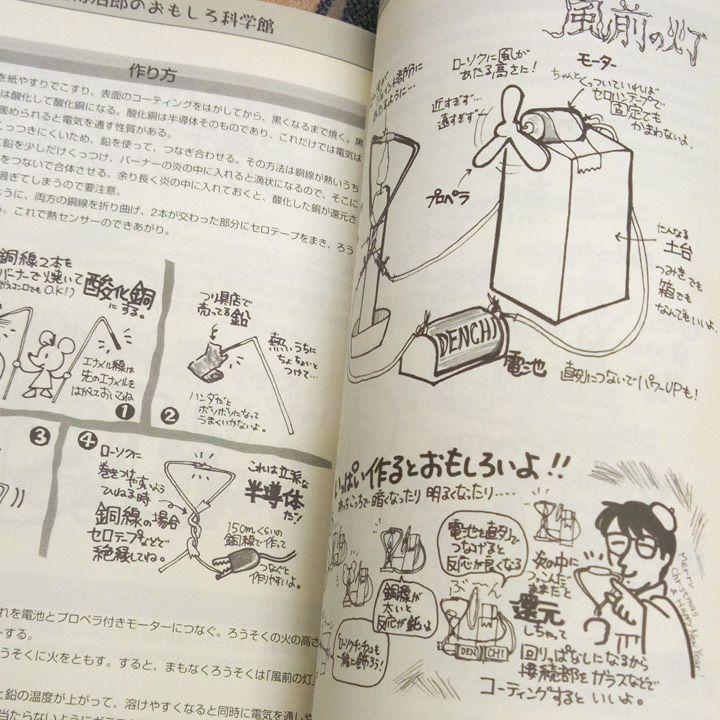 郎のおもしろ科学館
作り方
を紙やすりでこすり、表面のコーティングをはがしてから、黒くなるまで焼く。黒
は酸化して酸化銅になる。酸化銅は半導体そのものであり、これだけでは電気は
暖められると電気を通す性質がある。
くっつきにくいため、鉛を使って、つなぎ合わせる。その方法は銅線が熱いうち
に鉛を少しだけくっつけ、バーナーの炎の中に入れると滴状になるので、そこに
をつないで合体させる。余り長く炎の中に入れておくと、酸化した銅が還元さ
過ぎてしまうので要注意。
ように、両方の銅線を折り曲げ、2本が交わった部分にセロテープをまき、ろう
。これで熱センサーのできあがり。
銅線2本を
バーナーで焼いて
ガスコンロでもO.K!)
酸化銅
にする。
エナメル線は
先のエナメルを
はがしておいてね
1
つり具店で
売ってる鉛
熱いうちに
ちょちょいと
つけて…
ハンダだと
ボソボソになって
うまくいかないよ。
2
3
4
ローソクに
巻きつけ
やすいよう
ひねる時
銅線の場合
セロテープなどで
絶縁してね。
これは立派な
半導体
だ!
15cmくらいの
銅線で作って
つなぐと
作りやすいよ。
れを電池とプロペラ付きモーターにつなぐ。ろうそくの火の高さ
トする。
ろうそくに火をともす。すると、まもなくろうそくは「風前の灯」
と鉛の温度が上がって、溶けやすくなると同時に電気を通しや
風前の灯
ローソクに風が
あたる高さに!
近すぎず…
遠すぎず
モーター
ちゃんとくっついていれば
セロハンテープで
固定でも
かまわないよ。
プロペラ
たんなる
土台
つみきでも
箱でも
なんでもいいよ。
DENCHI
電池
直列につないでパワーUPも!
いっぱい作るとおもしろいよ!!
あっちこっちで暗くなったり明るくなったり‥‥
電池を直列で
つなげると
反応が良くなる
ぶ〜〜ん
銅線が
太いと
反応が鈍いよ
一緒に飾ろう!
DENCHI
炎の中に
つっこんだ
ままだと
還元
しちゃって
回りっぱなしになるから
接続部をガラスなどで
コーティングするといいよ。
Merry
Christmas
& Happy New Year